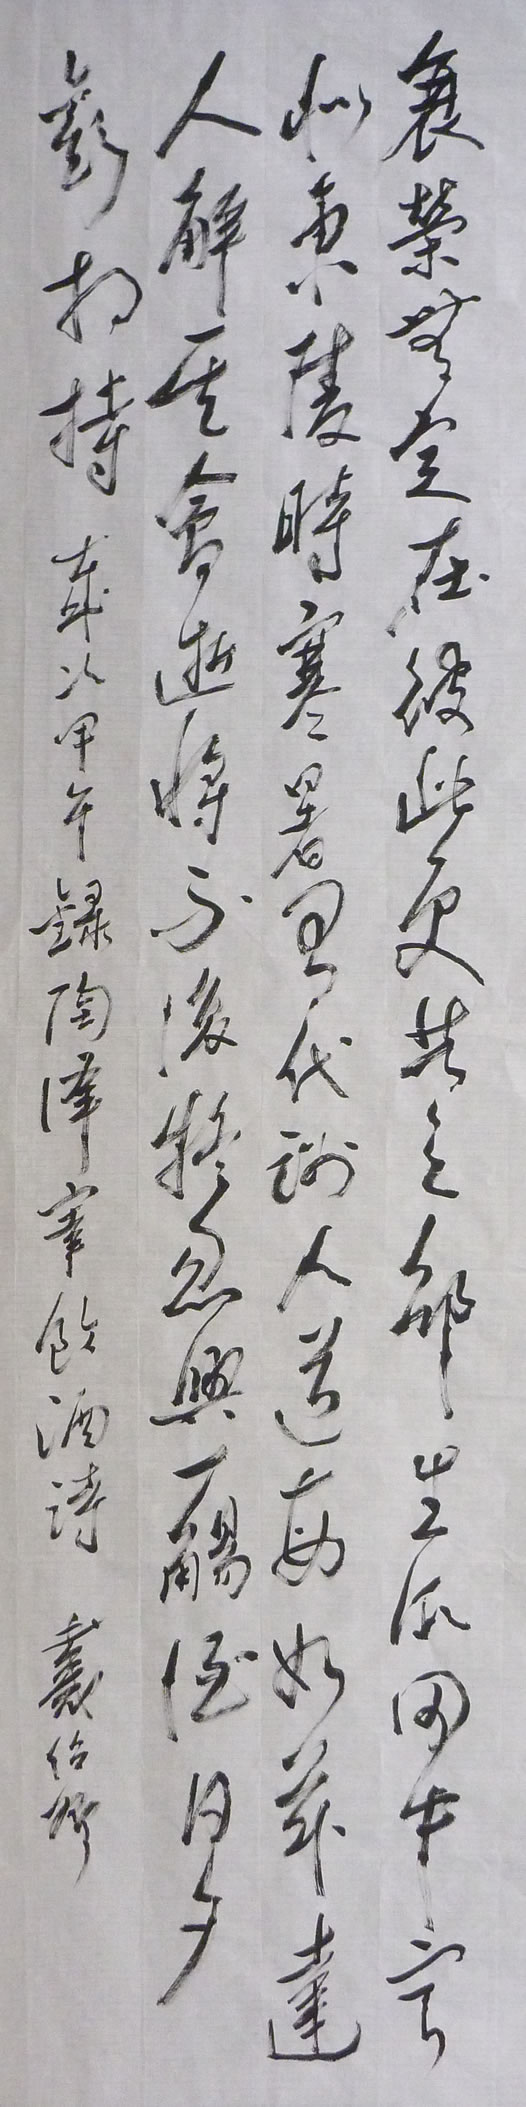 衰榮無定在彼此更共之邵生瓜田中寧
似東陵時寒暑有代謝人道每如茲達
人解其會逝將不復疑忽與一觴酒日夕
歡相持 歲次甲午錄陶澤宰飲酒詩 戴紹